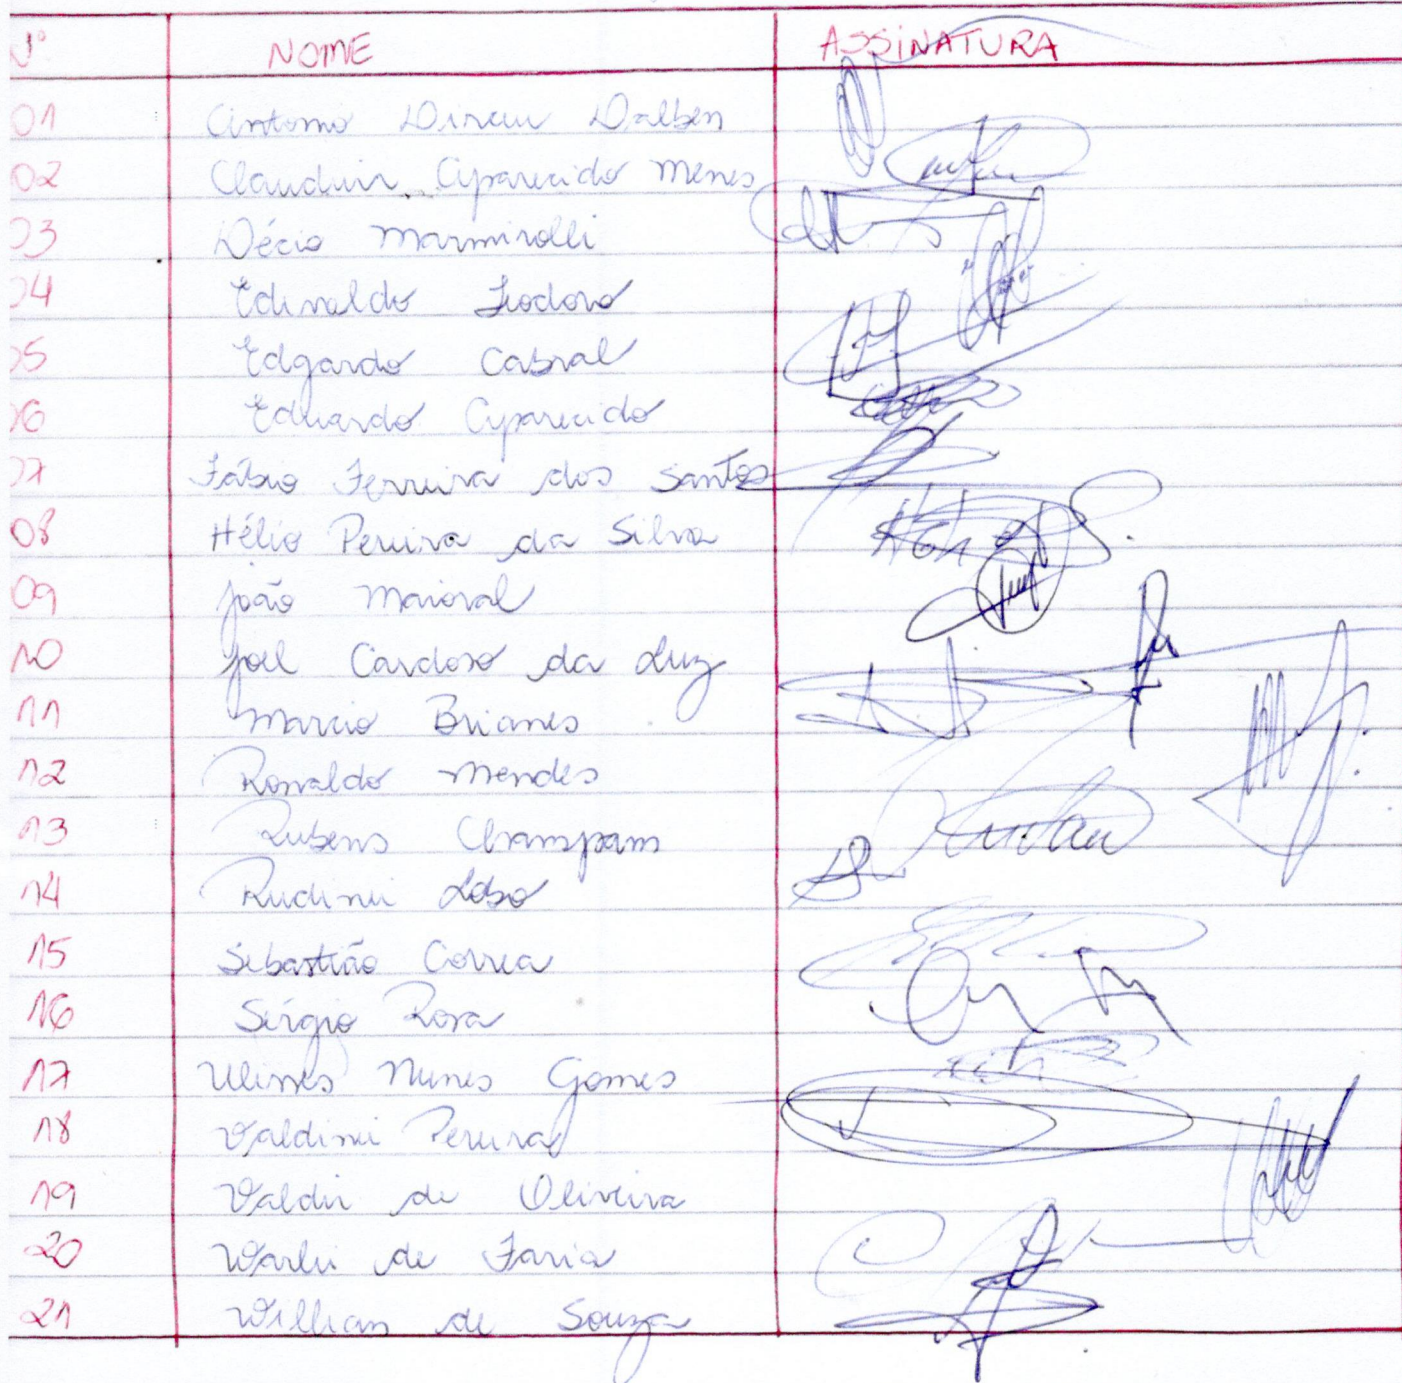 Nº NOME ASSINATURA
01 Antonio Dirceu Dalben
02 Claudinir Aparecido Menes
03 Décio Marmirolli
04 Edinaldo Teodoro
05 Edgardo Cabral
06 Eduardo Aparecido
07 Fábio Ferreira dos Santos
08 Hélio Pereira da Silva
09 João Maioral
10 Joel Cardoso da Luz
11 Marcio Brianes
12 Ronaldo Mendes
13 Rubens Champam
14 Rudinei Lobo
15 Sebastião Correa
16 Sérgio Rosa
17 Ulisses Nunes Gomes
18 Valdinei Pereira
19 Valdir de Oliveira
20 Warlei de Faria
21 Willian de Souza